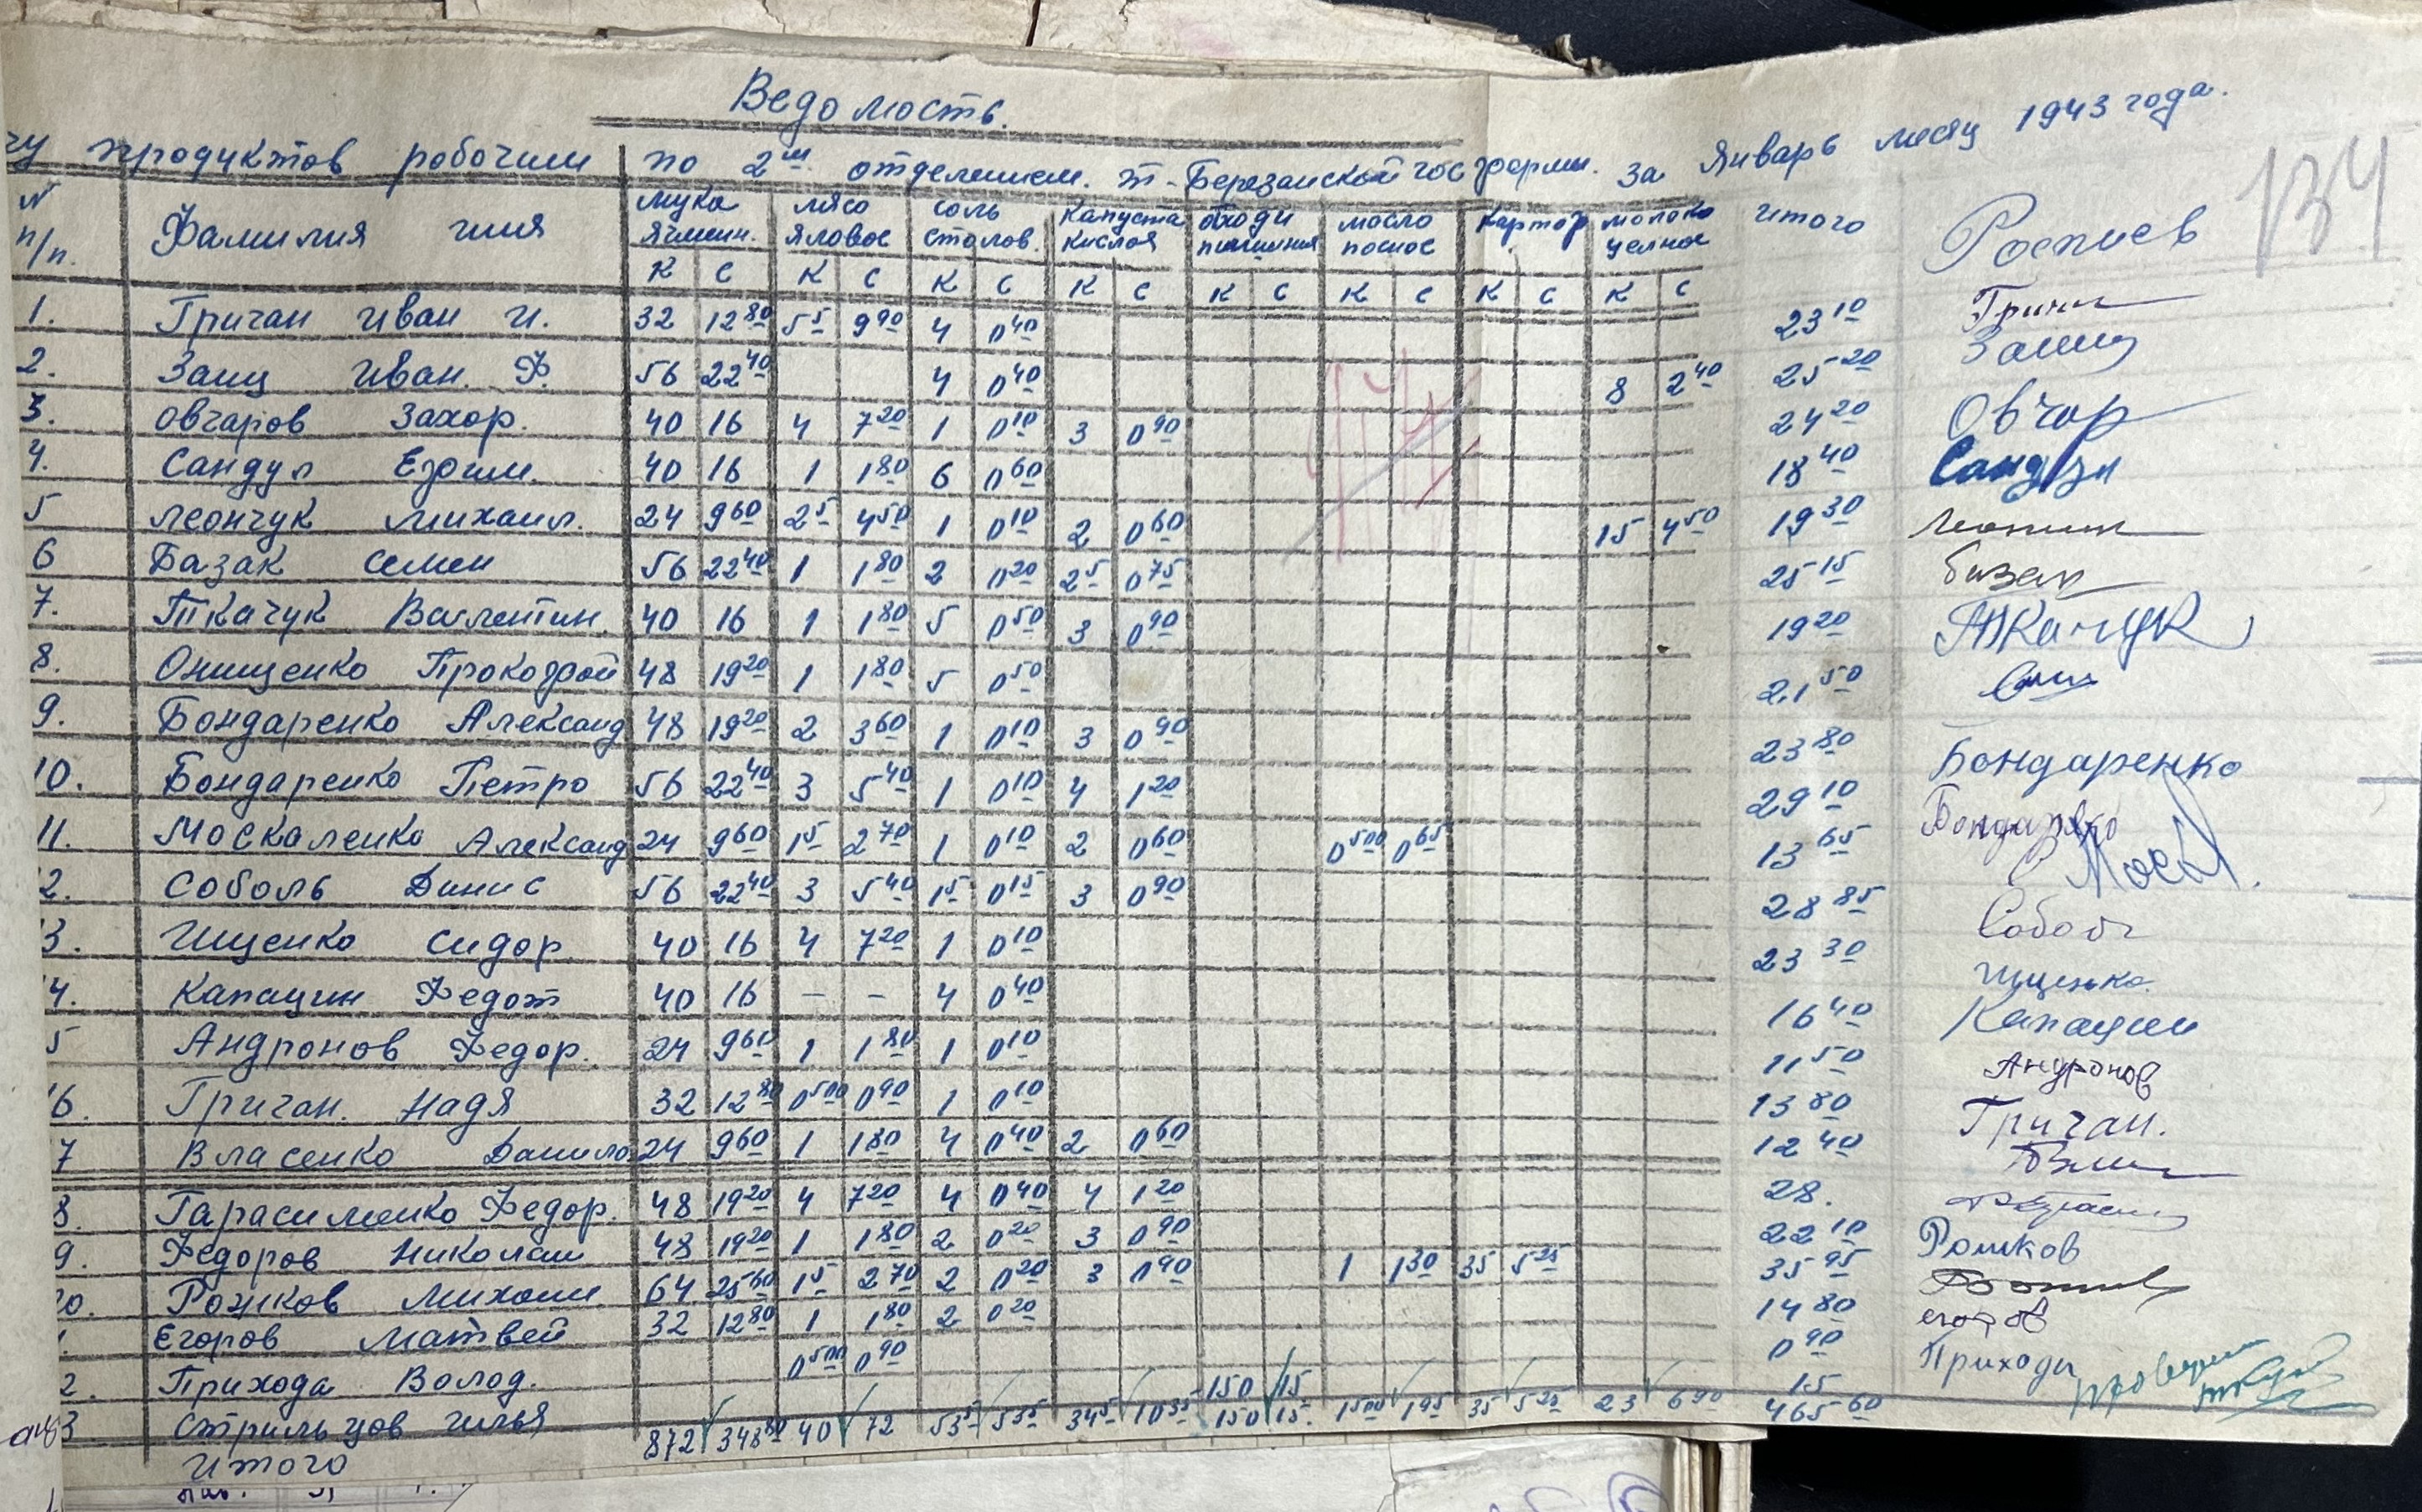 Ведомость.
чу продуктов робочим по 2м отделением. т-Березанской госфермы. за Январь месяц 1943 года.
134
N п/п. Фамилия имя мука ячмен. мясо яловое соль столов. капуста кислоя отходи пшиния масло посное картоф молоко целное итого Роспись
К С К С К С К С К С К С К С К С
1. Гричан Иван И. 32 12 80 5 5 9 90 4 0 40 23 10 Гричн
2. Заиц Иван. Ф. 56 22 40 4 0 40 8 2 40 25 20 Заиц
3. Овчаров Захор. 40 16 4 7 20 1 0 10 3 0 90 24 20 Овчар
4. Сандул Ефим. 40 16 1 1 80 6 0 60 18 40 Сандул
5 Леончук Михаил. 24 9 60 2 5 4 50 1 0 10 2 0 60 15 4 50 19 30
6 Базак Семен 56 22 40 1 1 80 2 0 20 2 5 0 75 25 15 Базак
7. Ткачук Валентин. 40 16 1 1 80 5 0 50 3 0 90 19 20 Ткачук
8. Онищенко Прокофой 48 19 20 1 1 80 5 0 50 21 50 Онищ
9. Бондаренко Александ 48 19 20 2 3 60 1 0 10 3 0 90 23 80 Бондаренко
10. Бондаренко Петро 56 22 40 3 5 40 1 0 10 4 1 20 29 10 Бондаренко
11. Москаленко Александ 24 9 60 1 5 2 70 1 0 10 2 0 60 0 500 0 65 13 65 Моск
2. Соболь Динис 56 22 40 3 5 40 1 5 0 15 3 0 90 28 85 Соболь
3. Ищенко Сидор. 40 16 4 7 20 1 0 10 23 30 Ищенко.
4. Капацин Федот 40 16 – – 4 0 40 16 40 Капацин
5 Андронов Федор. 24 9 60 1 1 80 1 0 10 11 50 Андронов
6. Гричан. Надя 32 12 80 0 500 0 90 1 0 10 13 80 Гричан.
7 Власенко Данило 24 9 60 1 1 80 4 0 40 2 0 60 12 40
8. Гарасименко Федор. 48 19 20 4 7 20 4 0 40 4 1 20 28.
9. Федоров Николаи 48 19 20 1 1 80 2 0 20 3 0 90 22 10
20. Рожков Михаил. 64 25 60 1 5 2 70 2 0 20 3 0 90 1 1 30 35 5 25 35 95 Рожков
1. Егоров Матвей 32 12 80 1 1 80 2 0 20 14 80 егоров
2. Прихода Волод. 0 500 0 90 0 90 Приходы
3 Стрильцов Илья 150 15 15
Итого 872 348 80 40 72 53 5 5 35 34 5 10 35 150 15. 1 500 1 95 35 5 25 23 6 90 465 60